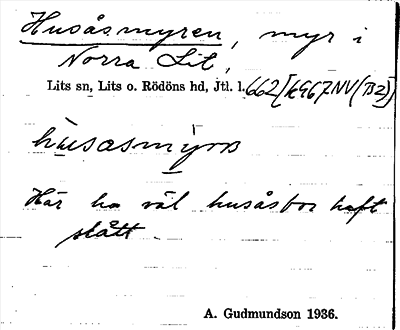 Husåsmyren, myr i
Norra Lit,
Lits sn, Lits o. Rödöns hd, Jtl. l. 662[K967NV(B2)]
Här ha väl husåsbor haft
slått.
A. Gudmundson 1936.